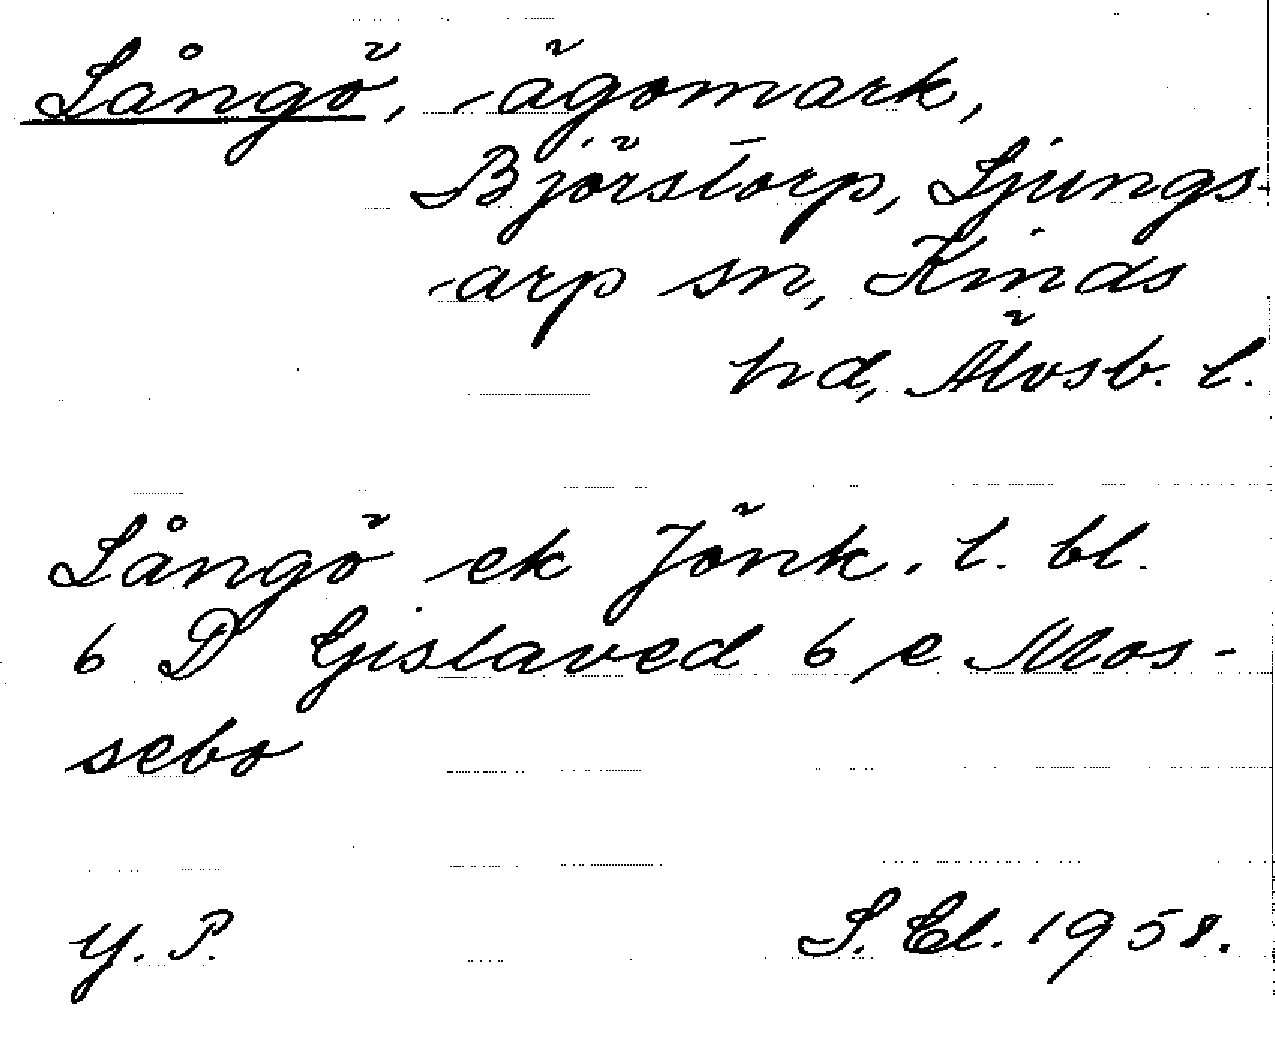 Långö, ägomark,
Björstorp, Ljungs-
arp sn, Kinds
hd, Älvsb. l.
Långö ek Jönk. l. bl.
6 D Gislaved 6 e Mos-
sebo
Y. P. S. El. 1958.